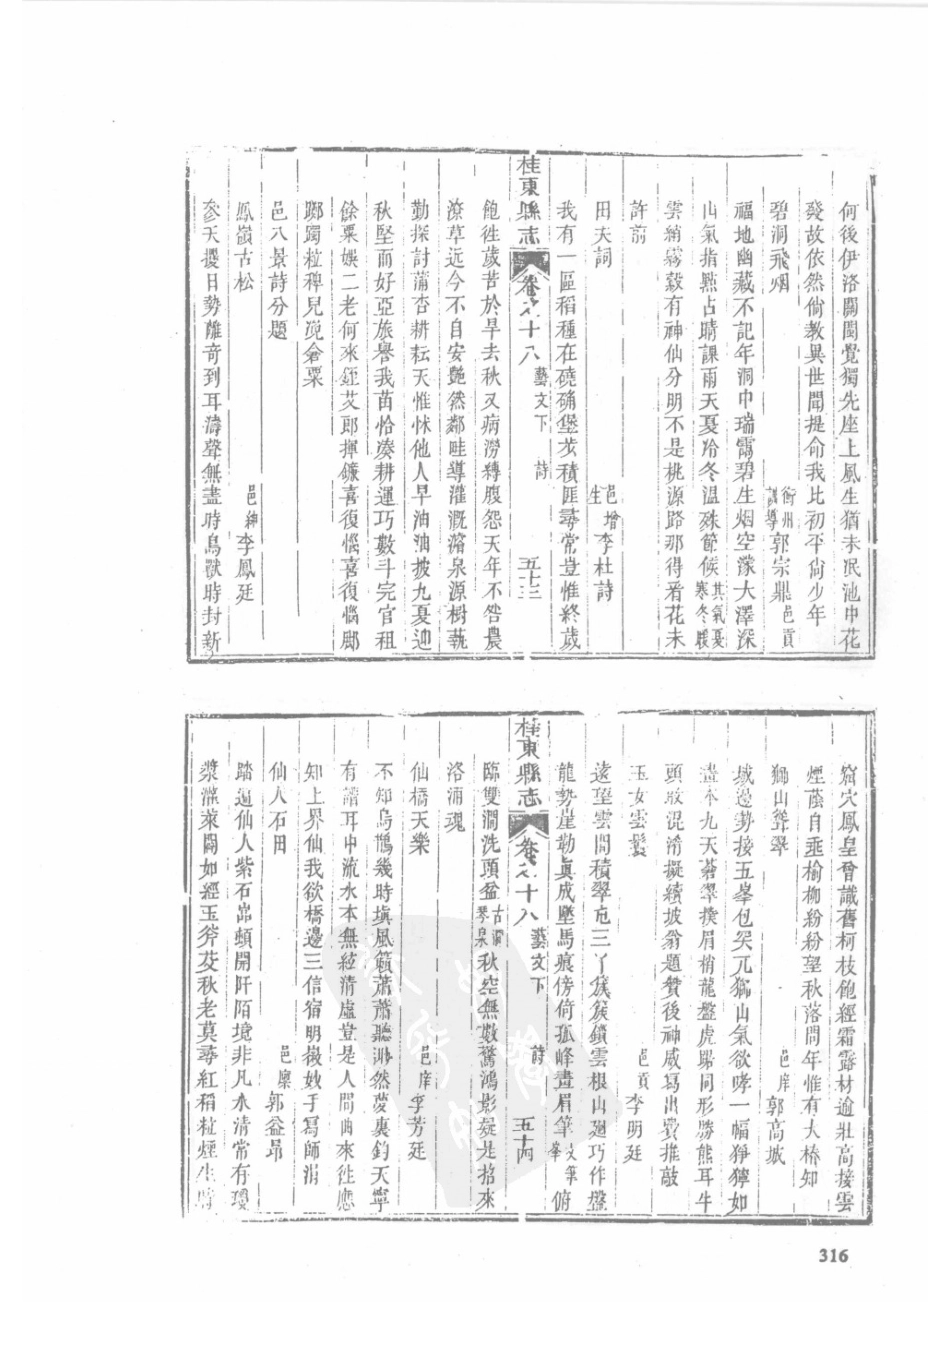 何後伊洛關閩覺獨先座上風生猶未泯池中花
發故依然倘教異世聞提命我比初平尙少年
碧洞飛烟 衡州訓導郭宗鼎邑貢
福地幽藏不記年洞中瑞靄碧生烟空濛大澤深
山氣指點占晴課雨天夏冷冬溫殊節候其氣夏寒冬暖
雲綃霧縠有神仙分明不是桃源路那得看花未
許前
田夫詞 邑增生李杜詩
我有一區稻種在磽确堡茨積匪尋常豈惟終歲
桂東縣志 卷之十八 藝文下 詩 五十三
飽徃歲苦於旱去秋又病澇縛腹怨天年不咎農
潦草远今不自安艶然鄰畦導灌漑濬泉源樹蓺
勤探討蒲杏耕耘天惟怵他人早油油披九夏迎
秋堅而好亞旅譽我苗恰湊耕運巧數斗完官租
餘粟娛二老何來銍艾郎揮鐮喜復惱喜復惱鄙
躑躅粒稗兒覓倉粟
邑八景詩分題
鳳嶺古松 邑紳李鳳廷
參天擾日勢離奇到耳濤聲無盡時鳥獸時封新
窟穴鳳皇曾識舊柯枝飽經霜露材逾壯高接雲
煙蔭自垂榆柳紛紛望秋落問年惟有大椿知
獅山聳翠 邑庠郭高城
城邊勢接五峯也突兀獅山氣欲哮一幅猙獰如
畫本九天蒼翠撲眉梢龍盤虎踞同形勝熊耳牛
頭敢混淆擬續坡翁題贊後神威寫出費推敲
玉女雲鬟 邑貢李明廷
遠望雲間積翠屯三丫簇簇鎖雲根山廻巧作盤
龍勢崖勒眞成墜馬痕傍倚孤峰畫眉筆文筆峯俯
桂東縣志 卷之十八 藝文下 詩 五十四
臨雙澗洗頭盆古澗琴泉秋空無數驚鴻影疑是招來
洛浦魂
仙橋天樂 邑庠李芳廷
不知烏鵲幾時塡風籟蕭蕭聽渺然夢裏鈞天寧
有譜耳中流水本無絃淸虛豈是人間曲來徃應
知上界仙我欲橋邊三信宿明徽妙手寫師涓
仙人石田 邑廩郭益昂
踏遍仙人紫石巓頓開阡陌境非凡水清常有瓊
漿滋萊闢如經玉斧芟秋老莫尋紅稻粒煙生時
316